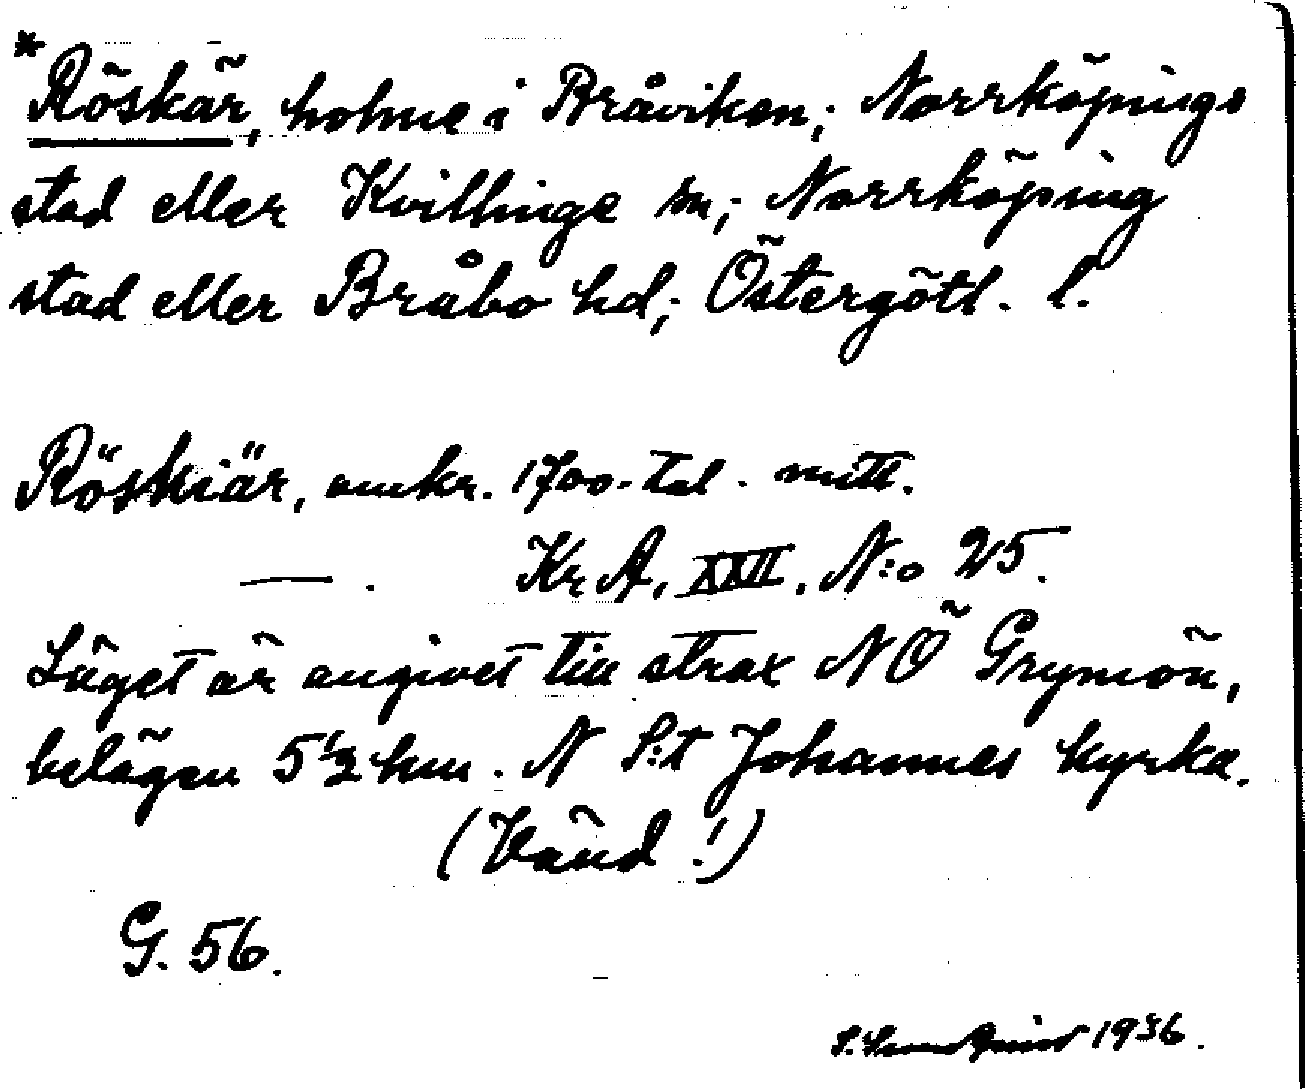 *Röskär, holme i Bråviken; Norrköpings
stad eller Kvillinge sn; Norrköping
stad eller Bråbo hd; Östergötl. l.
Röskiär, omkr. 1700-tal. mitt.
— . Kr. A. XXII. N:o 25.
Läget är angivet till strax NÖ Grymön,
belägen 5 1/2 km. N S:t Johannes kyrka.
(Vänd!)
G. 56.
1936.